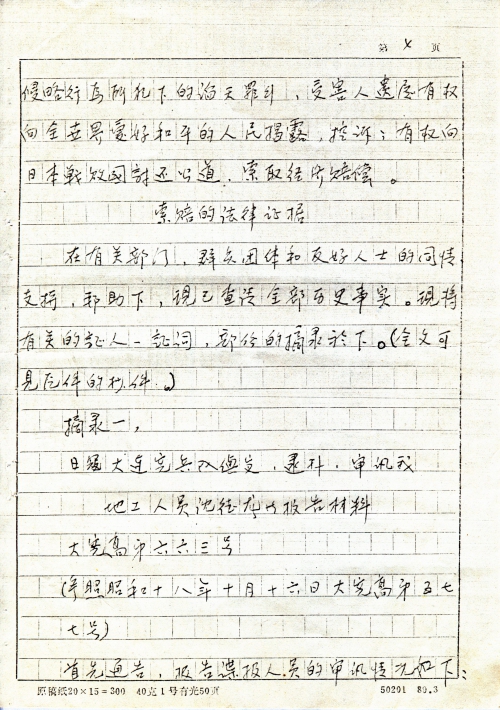 第 4 页
侵略行为所犯下的滔天罪行，受害人遗属有权
向全世界爱好和平的人民揭露，控诉；有权向
日本戰败國討还公道，索取经济赔偿。
索赔的法律证据
在有关部门，群众团体和友好人士的同情
支持，邦助下，现已查清全部历史事实。现将
有关的証人一証词，部份的摘录於下。(全文可
见原件的抄件。)
摘录一，
日 大连宪兵队侦查，逮扑，审讯我
地工人员沈得龙 报告材料
大宪高第六六三号
(参照昭和十八年十月十六日大宪高第五七
七号)
首先通告，报告谍报人员的审讯情况如下：
原稿纸20×15=300 40克1号有光50页 50201 89.3